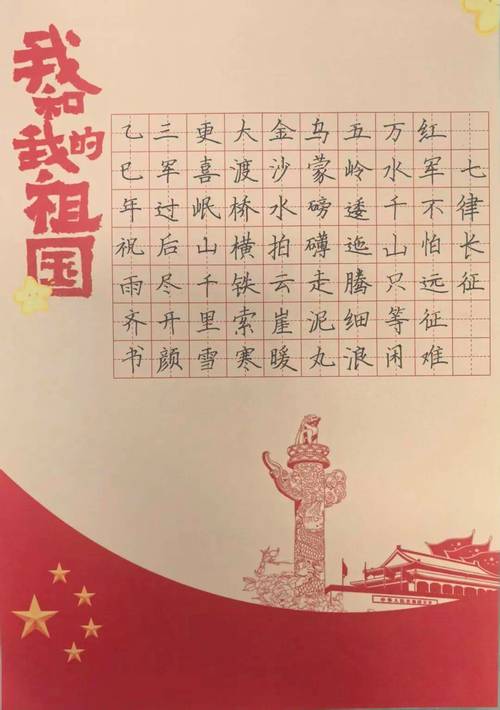 我和我的祖国
七律长征
红军不怕远征难
万水千山只等闲
五岭逶迤腾细浪
乌蒙磅礴走泥丸
金沙水拍云崖暖
大渡桥横铁索寒
更喜岷山千里雪
三军过后尽开颜
乙巳年祝雨齐书